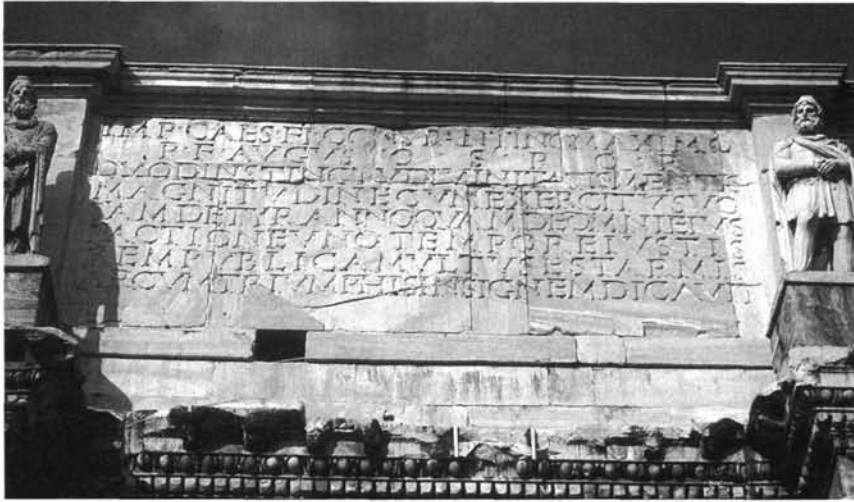 IMP · CAES · FL · CONSTANTINO MAXIMO
P · F · AVGVSTO · S · P · Q · R
QVOD INSTINCTV DIVINITATIS MENTIS
MAGNITVDINE CVM EXERCITV SVO
TAM DE TYRANNO QVAM DE OMNI EIVS
FACTIONE VNO TEMPORE IVSTIS
REMPVBLICAM VLTVS EST ARMIS
ARCVM TRIVMPHIS INSIGNEM DICAVIT